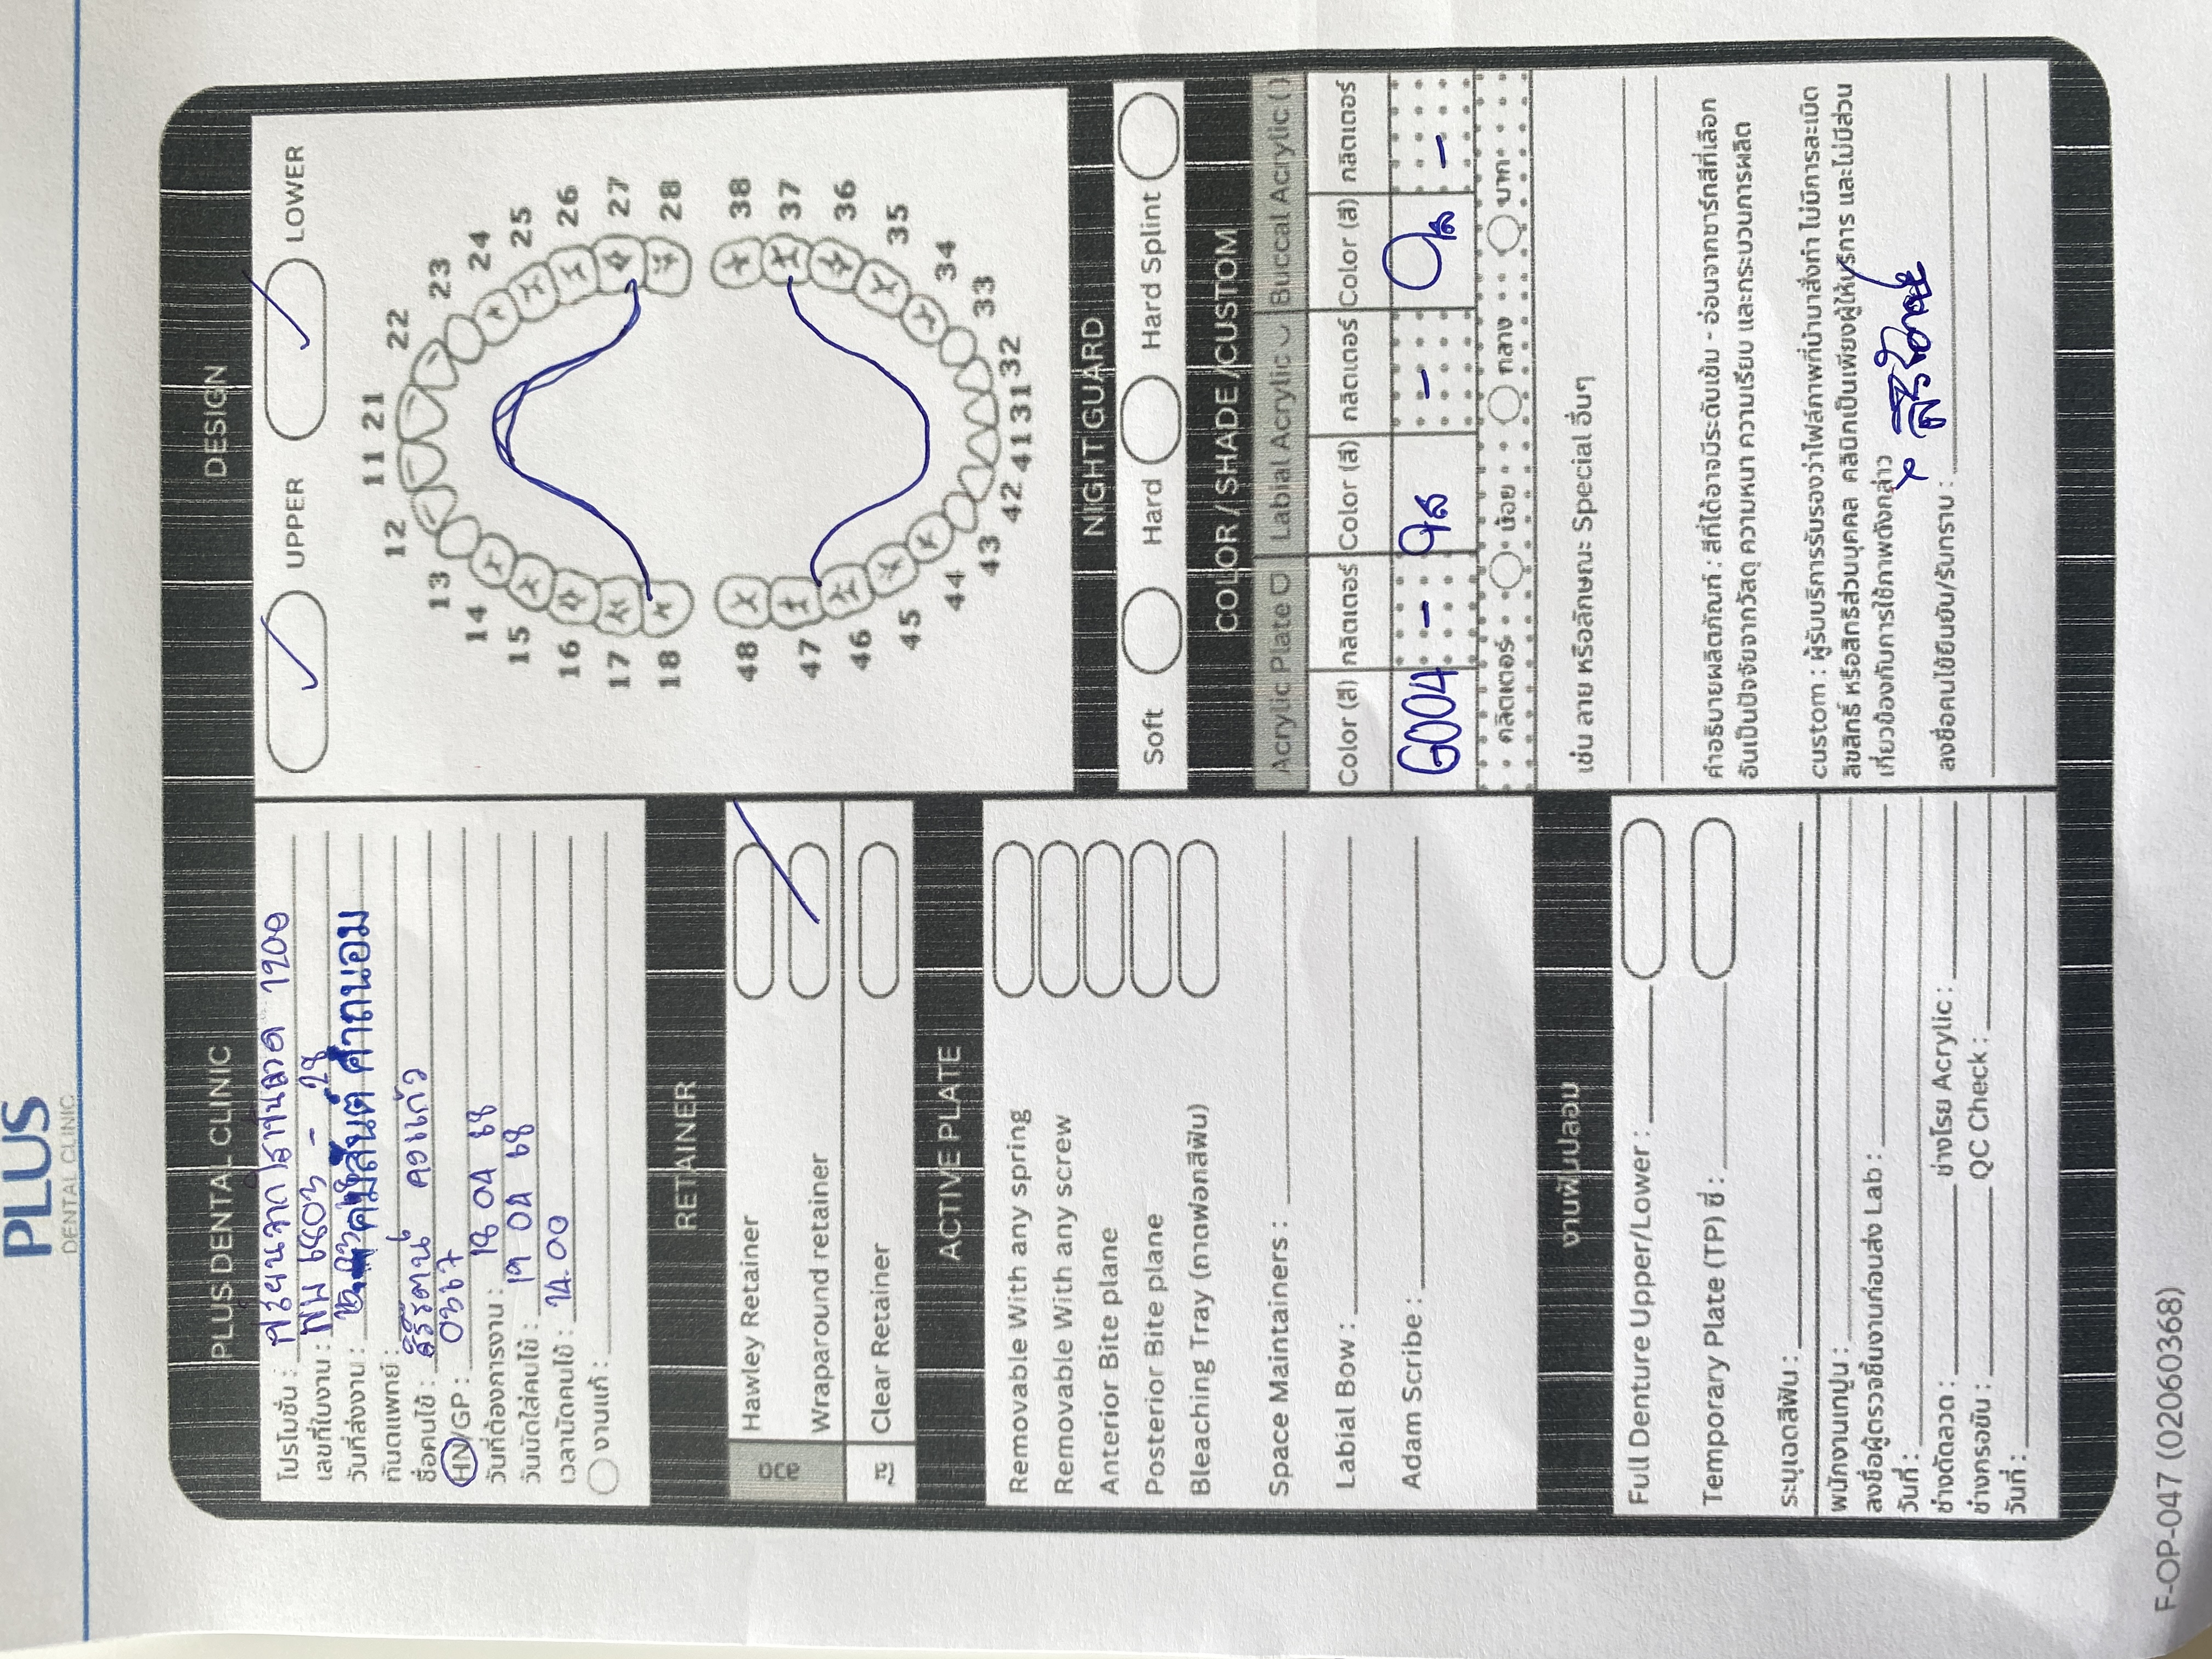 PLUS
DENTAL CLINIC
PLUS DENTAL CLINIC
โปรโมชั่น : 1200
เลขที่ใบงาน : 6803 - 28
วันที่ส่งงาน :
คมสันต์ คำถนอม
ทันตแพทย์ :
ชื่อคนไข้ : สิริรัตน์ คงแก้ว
HN/GP : 0367
วันที่ต้องการงาน : 18 04 68
วันนัดใส่คนไข้ : 19 04 68
เวลานัดคนไข้ : 14.00
งานแก้ :
RETAINER
ลวด
Hawley Retainer
Wraparound retainer
ใส
Clear Retainer
ACTIVE PLATE
Removable With any spring
Removable With any screw
Anterior Bite plane
Posterior Bite plane
Bleaching Tray (ถาดฟอกสีฟัน)
Space Maintainers :
Labial Bow :
Adam Scribe :
งานฟันปลอม
Full Denture Upper/Lower :
Temporary Plate (TP) ซี่ :
ระบุเฉดสีฟัน :
พนักงานเทปูน :
ลงชื่อผู้ตรวจชิ้นงานก่อนส่ง Lab :
วันที่ :
ช่างดัดลวด : ช่างโรย Acrylic :
ช่างกรอขัน : QC Check :
วันที่ :
DESIGN
UPPER LOWER
11 21
12 22
13 23
14 24
15 25
16 26
17 27
18 28
48 38
47 37
46 36
45 35
44 34
43 33
42 41 31 32
NIGHT GUARD
Soft Hard Hard Splint
COLOR / SHADE /CUSTOM
Acrylic Plate Labial Acrylic Buccal Acrylic ( )
Color (สี) กลิตเตอร์ Color (สี) กลิตเตอร์ Color (สี) กลิตเตอร์
G004 - ใส - ใส -
กลิตเตอร์ น้อย กลาง มาก
เช่น ลาย หรือลักษณะ Special อื่นๆ
คำอธิบายผลิตภัณฑ์ : สีที่ได้อาจมีระดับเข้ม - อ่อนจากชาร์ทสีที่เลือก
อันเป็นปัจจัยจากวัสดุ ความหนา ความเรียบ และกระบวนการผลิต
custom : ผู้รับบริการรับรองว่าไฟล์ภาพที่นำมาสั่งทำ ไม่มีการละเมิด
ลิขสิทธิ์ หรือสิทธิส่วนบุคคล คลินิกเป็นเพียงผู้ให้บริการ และไม่มีส่วน
เกี่ยวข้องกับการใช้ภาพดังกล่าว
ลงชื่อคนไข้ยืนยัน/รับทราบ :
F-OP-047 (02060368)